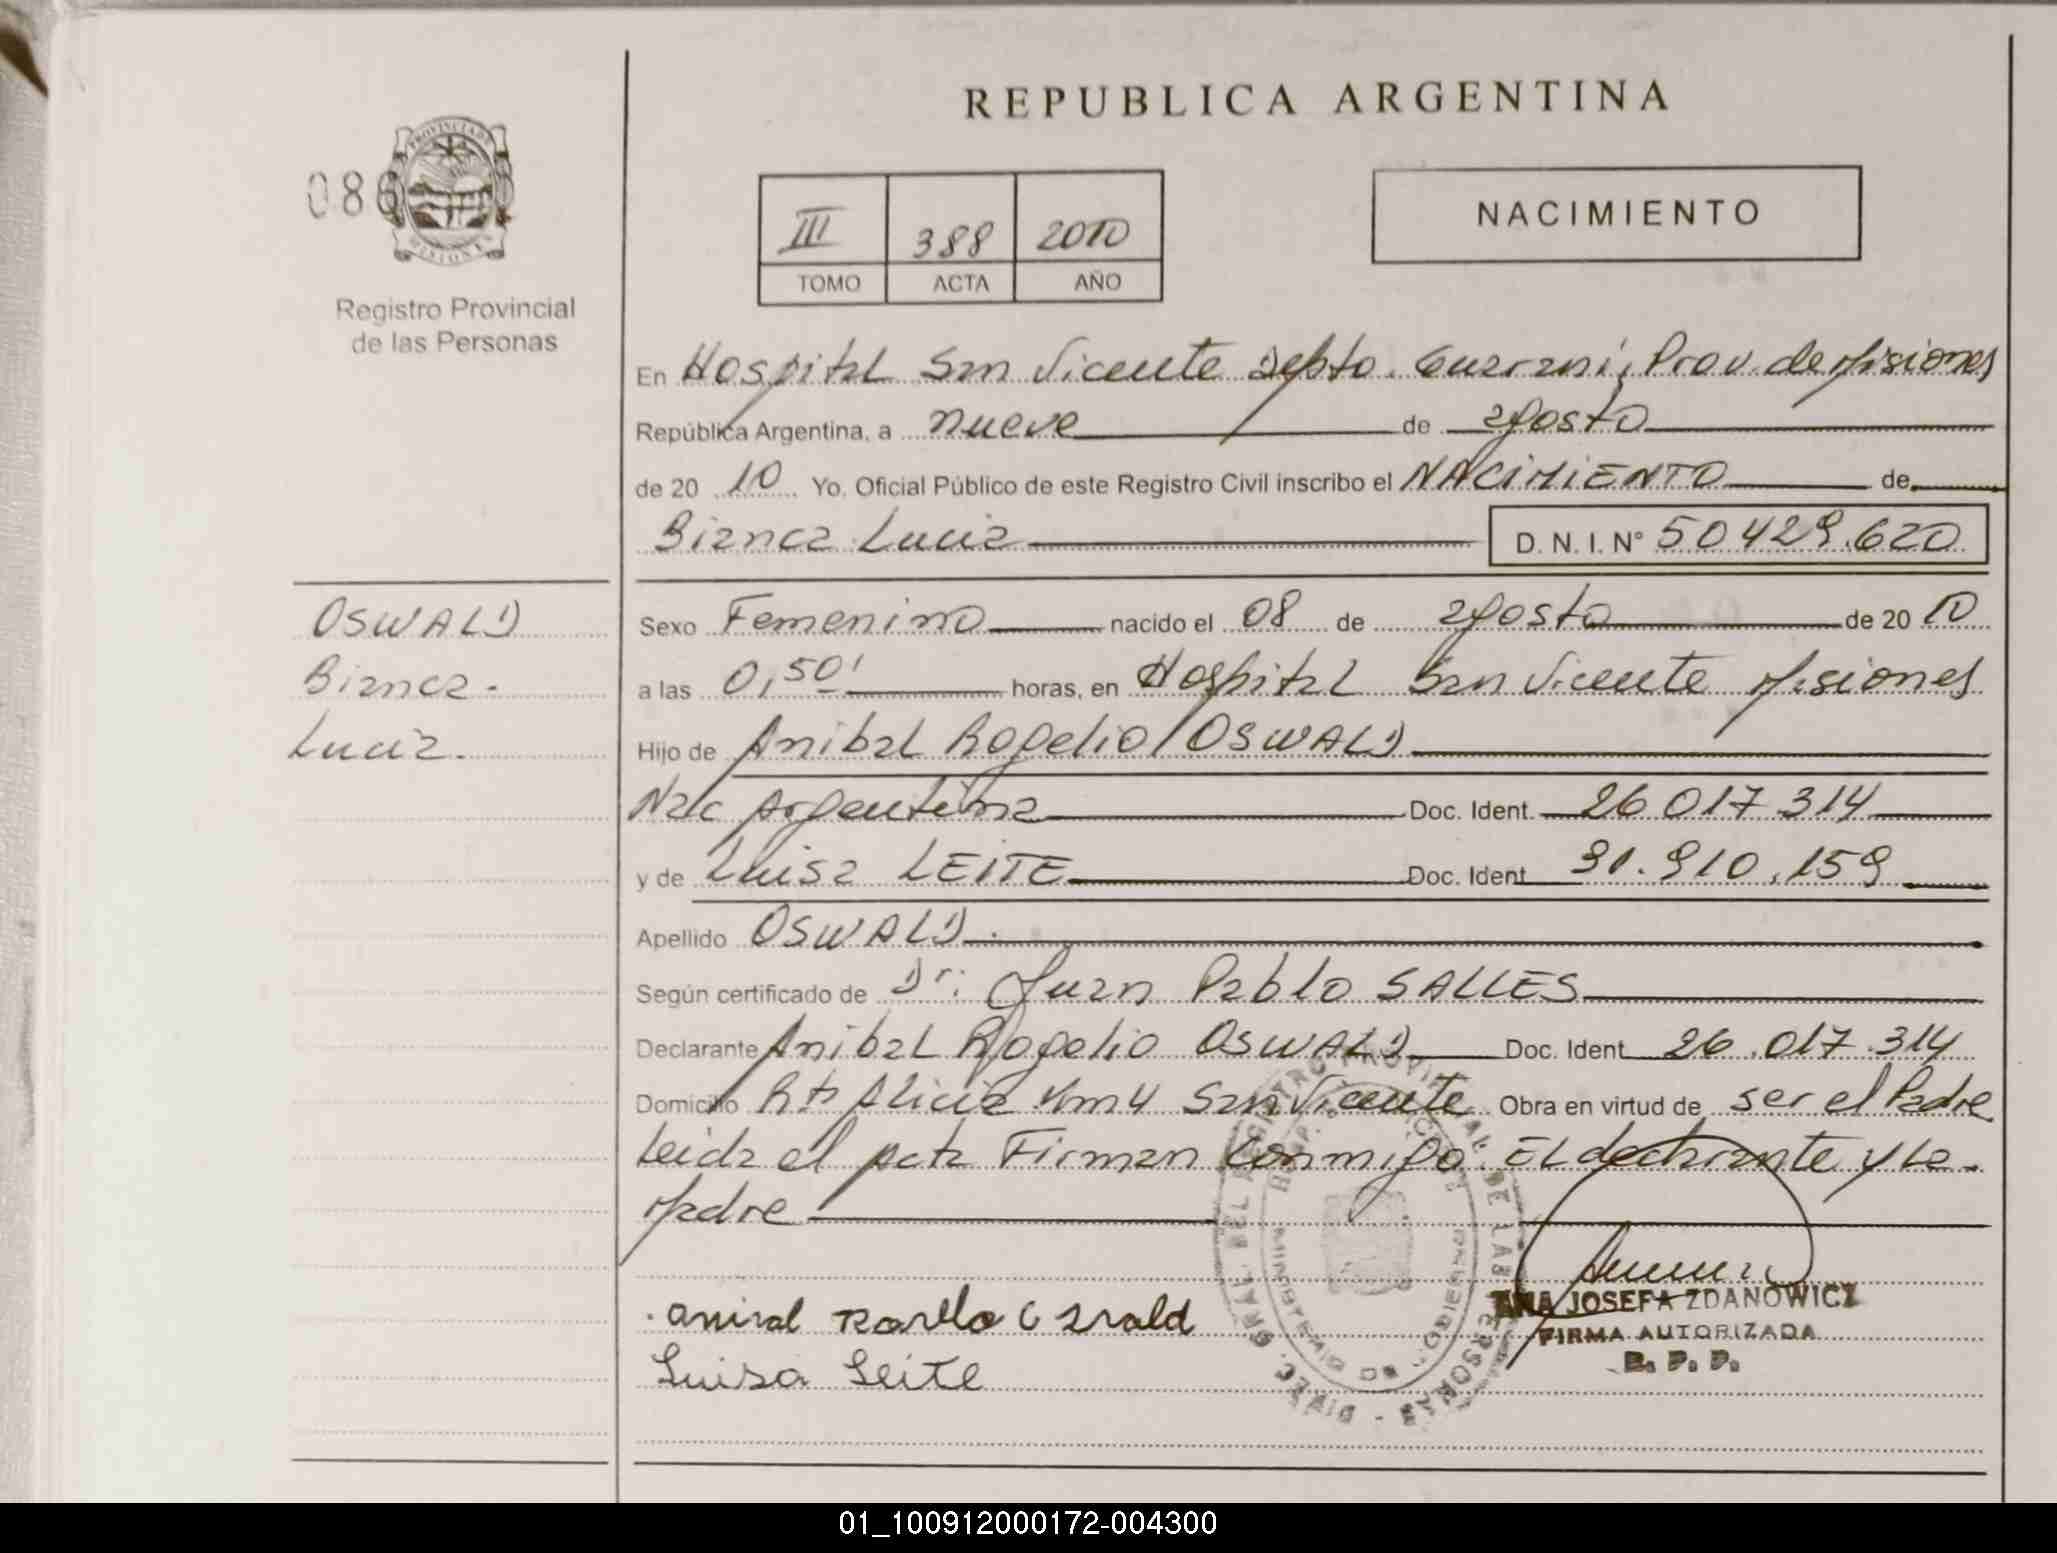 REPUBLICA ARGENTINA
086
PROVINCIA DE MISIONES
Registro Provincial
de las Personas
III 388 2010
TOMO ACTA AÑO
NACIMIENTO
En Hospital San Vicente Depto. Guarani, Prov. de Misiones
República Argentina, a nueve de agosto
de 20 10 Yo, Oficial Público de este Registro Civil inscribo el NACIMIENTO de
Bianca Lucia D. N. I. N° 50 429.620
OSWALD
Bianca.
Lucia.
Sexo Femenino nacido el 08 de agosto de 20 10
a las 0,50' horas, en Hospital San Vicente Misiones
Hijo de Anibal Rogelio OSWALD
Nac Argentina Doc. Ident. 26 017 314
y de Luisa LEITE Doc. Ident 31.910.159
Apellido OSWALD.
Según certificado de Dr. Juan Pablo SALLES
Declarante Anibal Rogelio OSWALD Doc. Ident 26.017.314
Domicilio Rta Alicia Km4 San Vicente Obra en virtud de ser el Padre
Leida el acta Firman Conmigo. El declarante y la
Madre
Luisa Leite
ANA JOSEFA ZDANOWICZ
FIRMA AUTORIZADA
R. P. P.
01_100912000172-004300